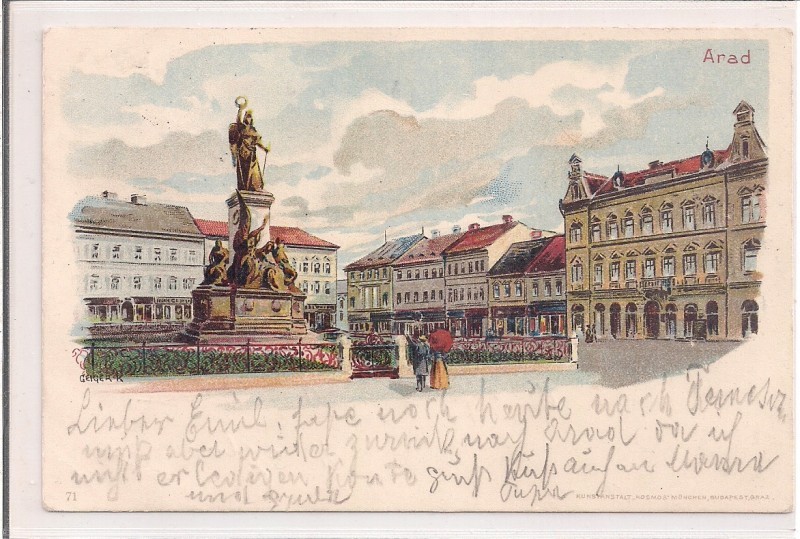 Arad
GEIGER R
Lieber Emil, fahre noch heute nach Temesv.
muß aber wieder zurück nach Arad da ich
nicht erledigen konnte Gruß Kuß auch an Mama
und
71
KUNSTANSTALT „KOSMOS" MÜNCHEN, BUDAPEST, PRAG.